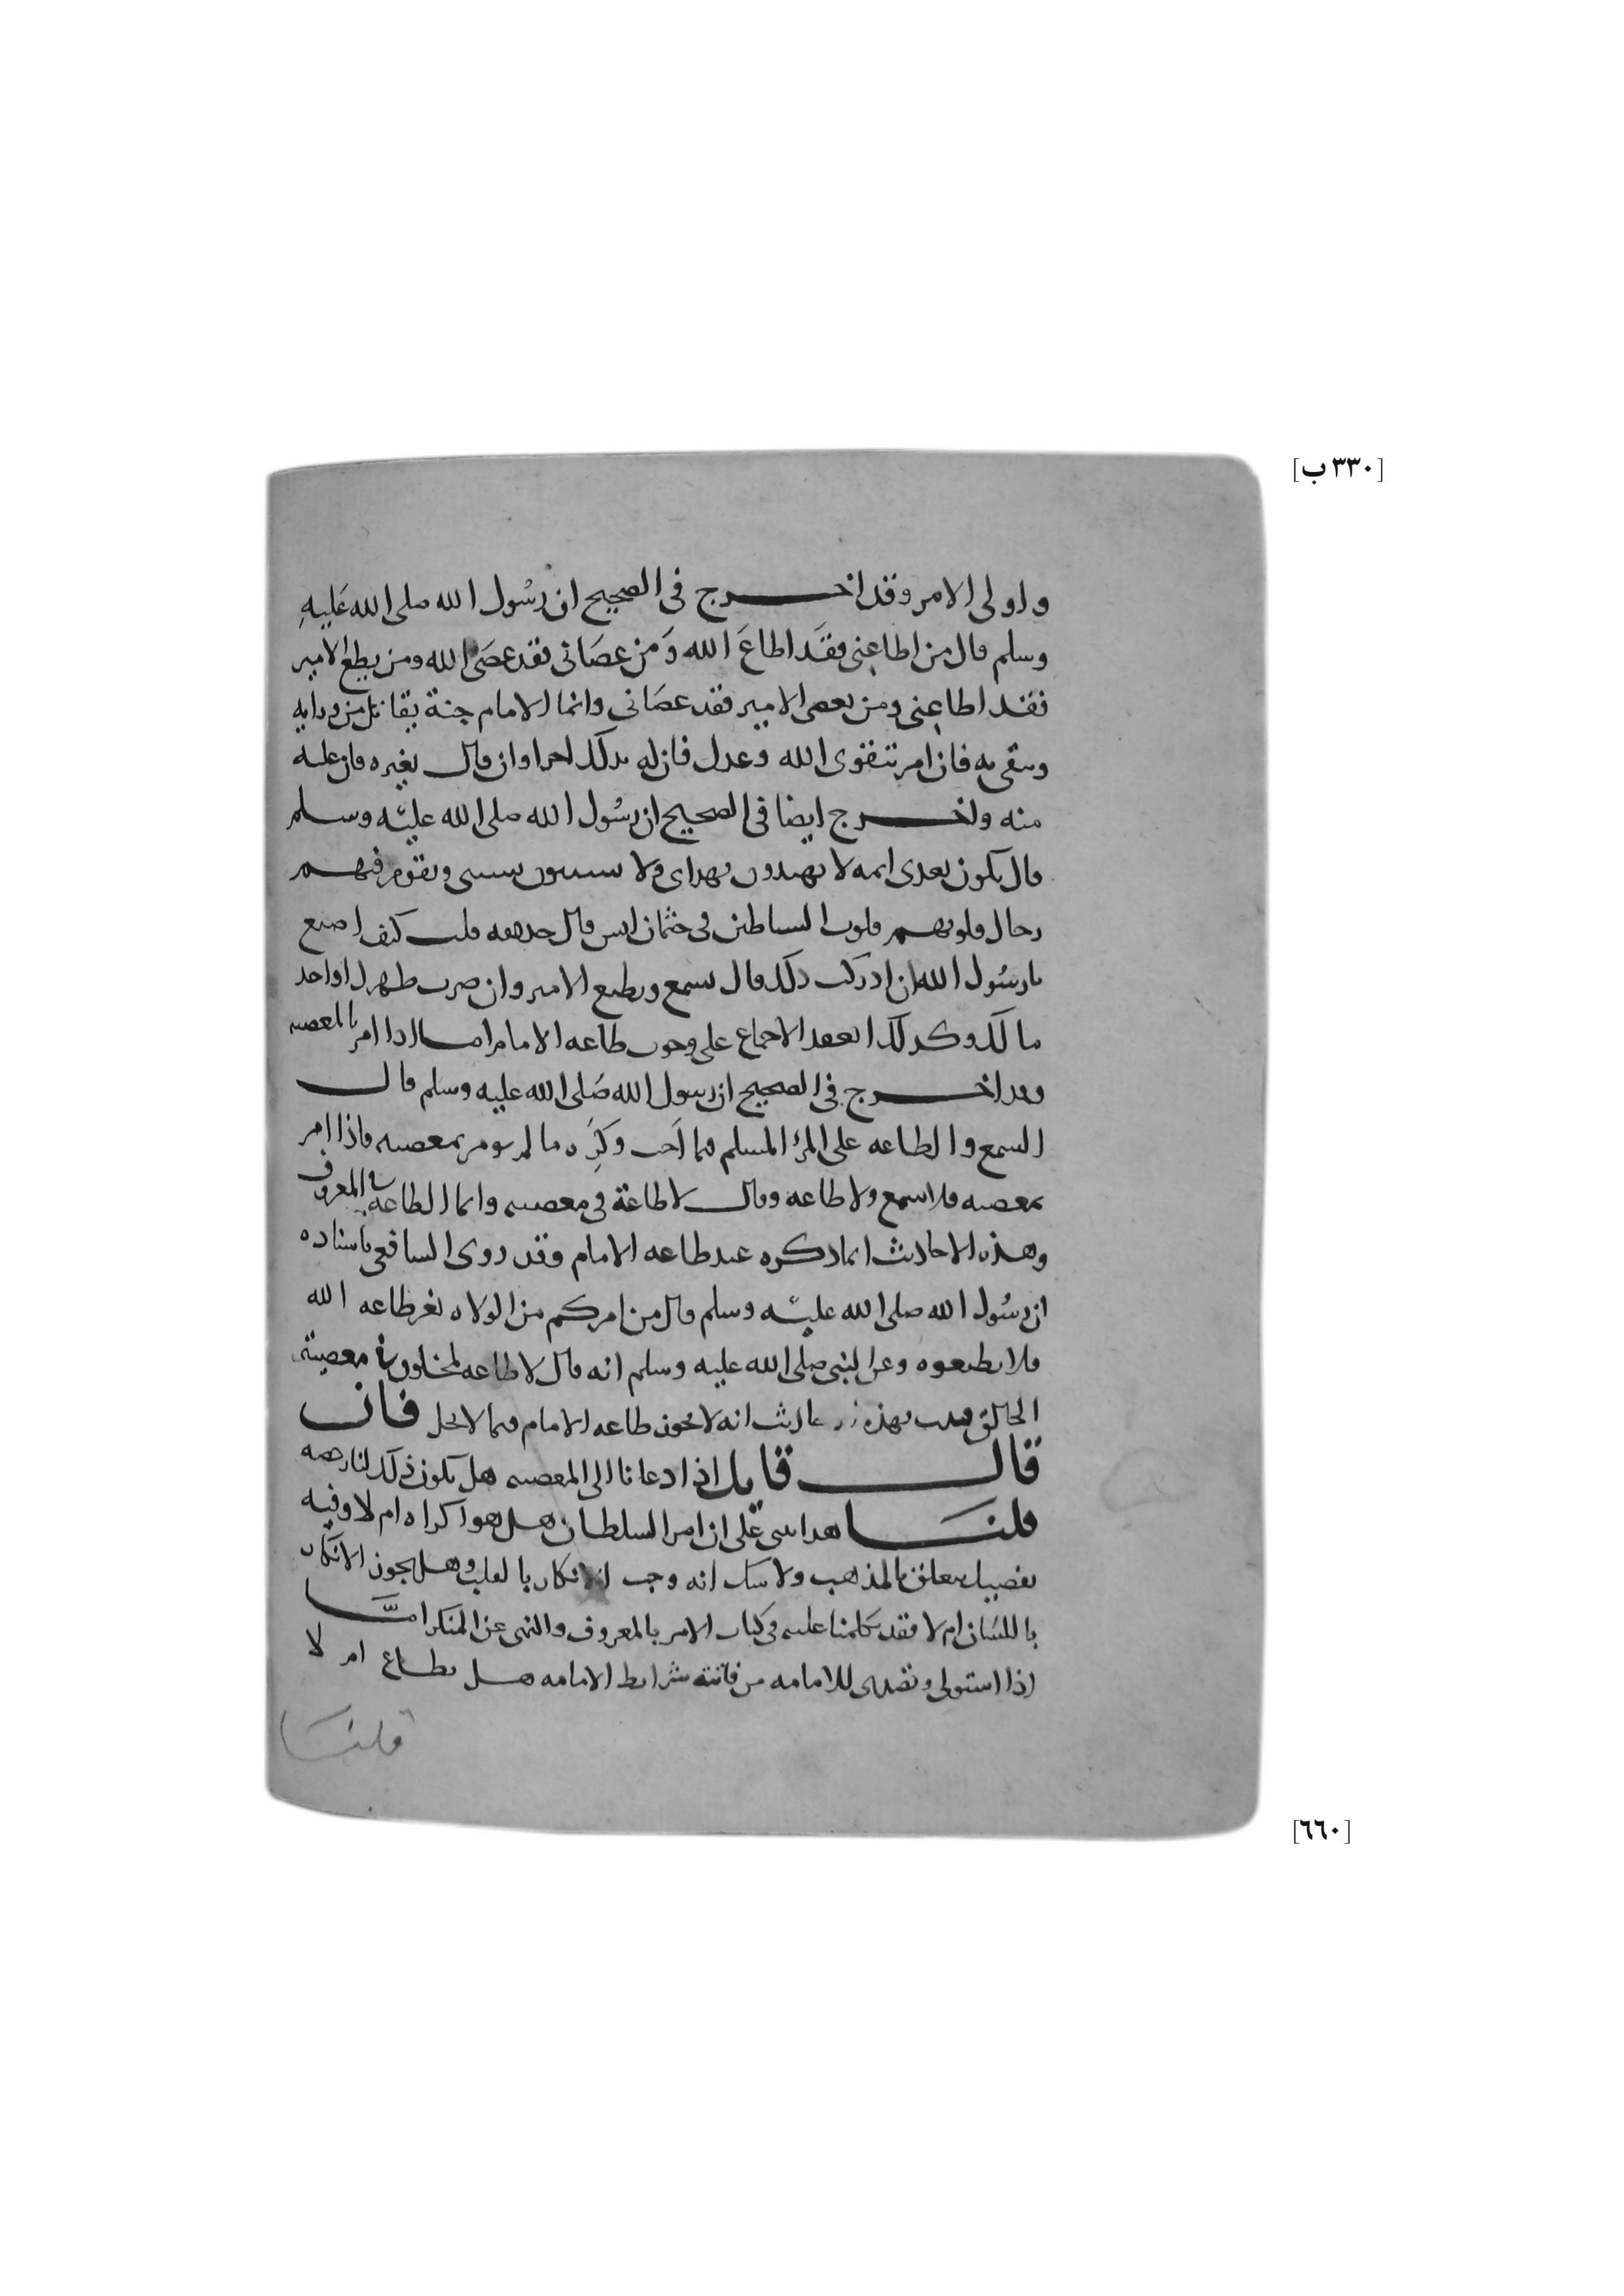 [٣٣٠ ب]
واولى الامر وقد اخرج فى الصحيح ان رسُول الله صلى الله عَليهِ
وسلم قال من اطاعنى فقَد اطاعَ الله وَمن عصَانى فقد عصَى الله ومن يطع الامير
فقد اطاعنى ومن يعص الامير فقد عصَانى وانما الامام جنة يقاتل من ورايه
ويتقى به فان امر بتقوى الله وعدل فان له بذلك اجرا وان قال بغيره فان عليه
منه واخرج ايضا فى الصحيح ان رسُول الله صلى الله عليه وسلم
قال يكون بعدى ايمه لا يهتدون بهداى ولا يستنون بسنتى ويقوم فيهم
رجال قلوبهم قلوب الشياطين فى جثمان انس قال حذيفه قلت كيف اصنع
يا رسُول الله ان ادركت ذلك قال تسمع وتطيع الامير وان ضرب ظهرك واخذ
مالك وكذلك انعقد الاجماع على وجوب طاعه الامام اما اذا امر بالمعصيه
وقد اخرج فى الصحيح ان رسول الله صَلى الله عليه وسلم قال
السمع والطاعه على المرء المسلم فيما اَحب وكَرِه ما لم يومر بمعصيه فاذا امر
بمعصيه فلا سمع ولا طاعه وقال لا طاعة فى معصيه وانما الطاعه فى المعروف
وهذه الاحاديث انما ذكره عند طاعه الامام وقد روى الشافعى باسناده
ان رسُول الله صلى الله عليه وسلم قال من امركم من الولاه بغير طاعه الله
فلا تطيعوه وعن النبى صلى الله عليه وسلم انه قال لا طاعه لمخلوق فى معصية
الخالق فثبت بهذه الاحاديث انه لا يجوز طاعه الامام فيما لا يحل فان
قال قايل اذا دعانا الى المعصيه هل يكون ذلك لنا رخصه
قلنَا هذا يبنى على ان امر السلطان هل هو اكراه ام لا وفيه
تفصيل يتعلق بالمذهب ولا شك انه وجب الانكار بالقلب وهل يجوز الانكار
باللسَان ام لا فقد تكلمنا عليه فى كتاب الامر بالمعروف والنهى عن المنكر امَّا
اذا استولى وتصدى للامامه من فاتته شرايط الامامه هل يطاع ام لا
قلنَا
[٦٦٠]